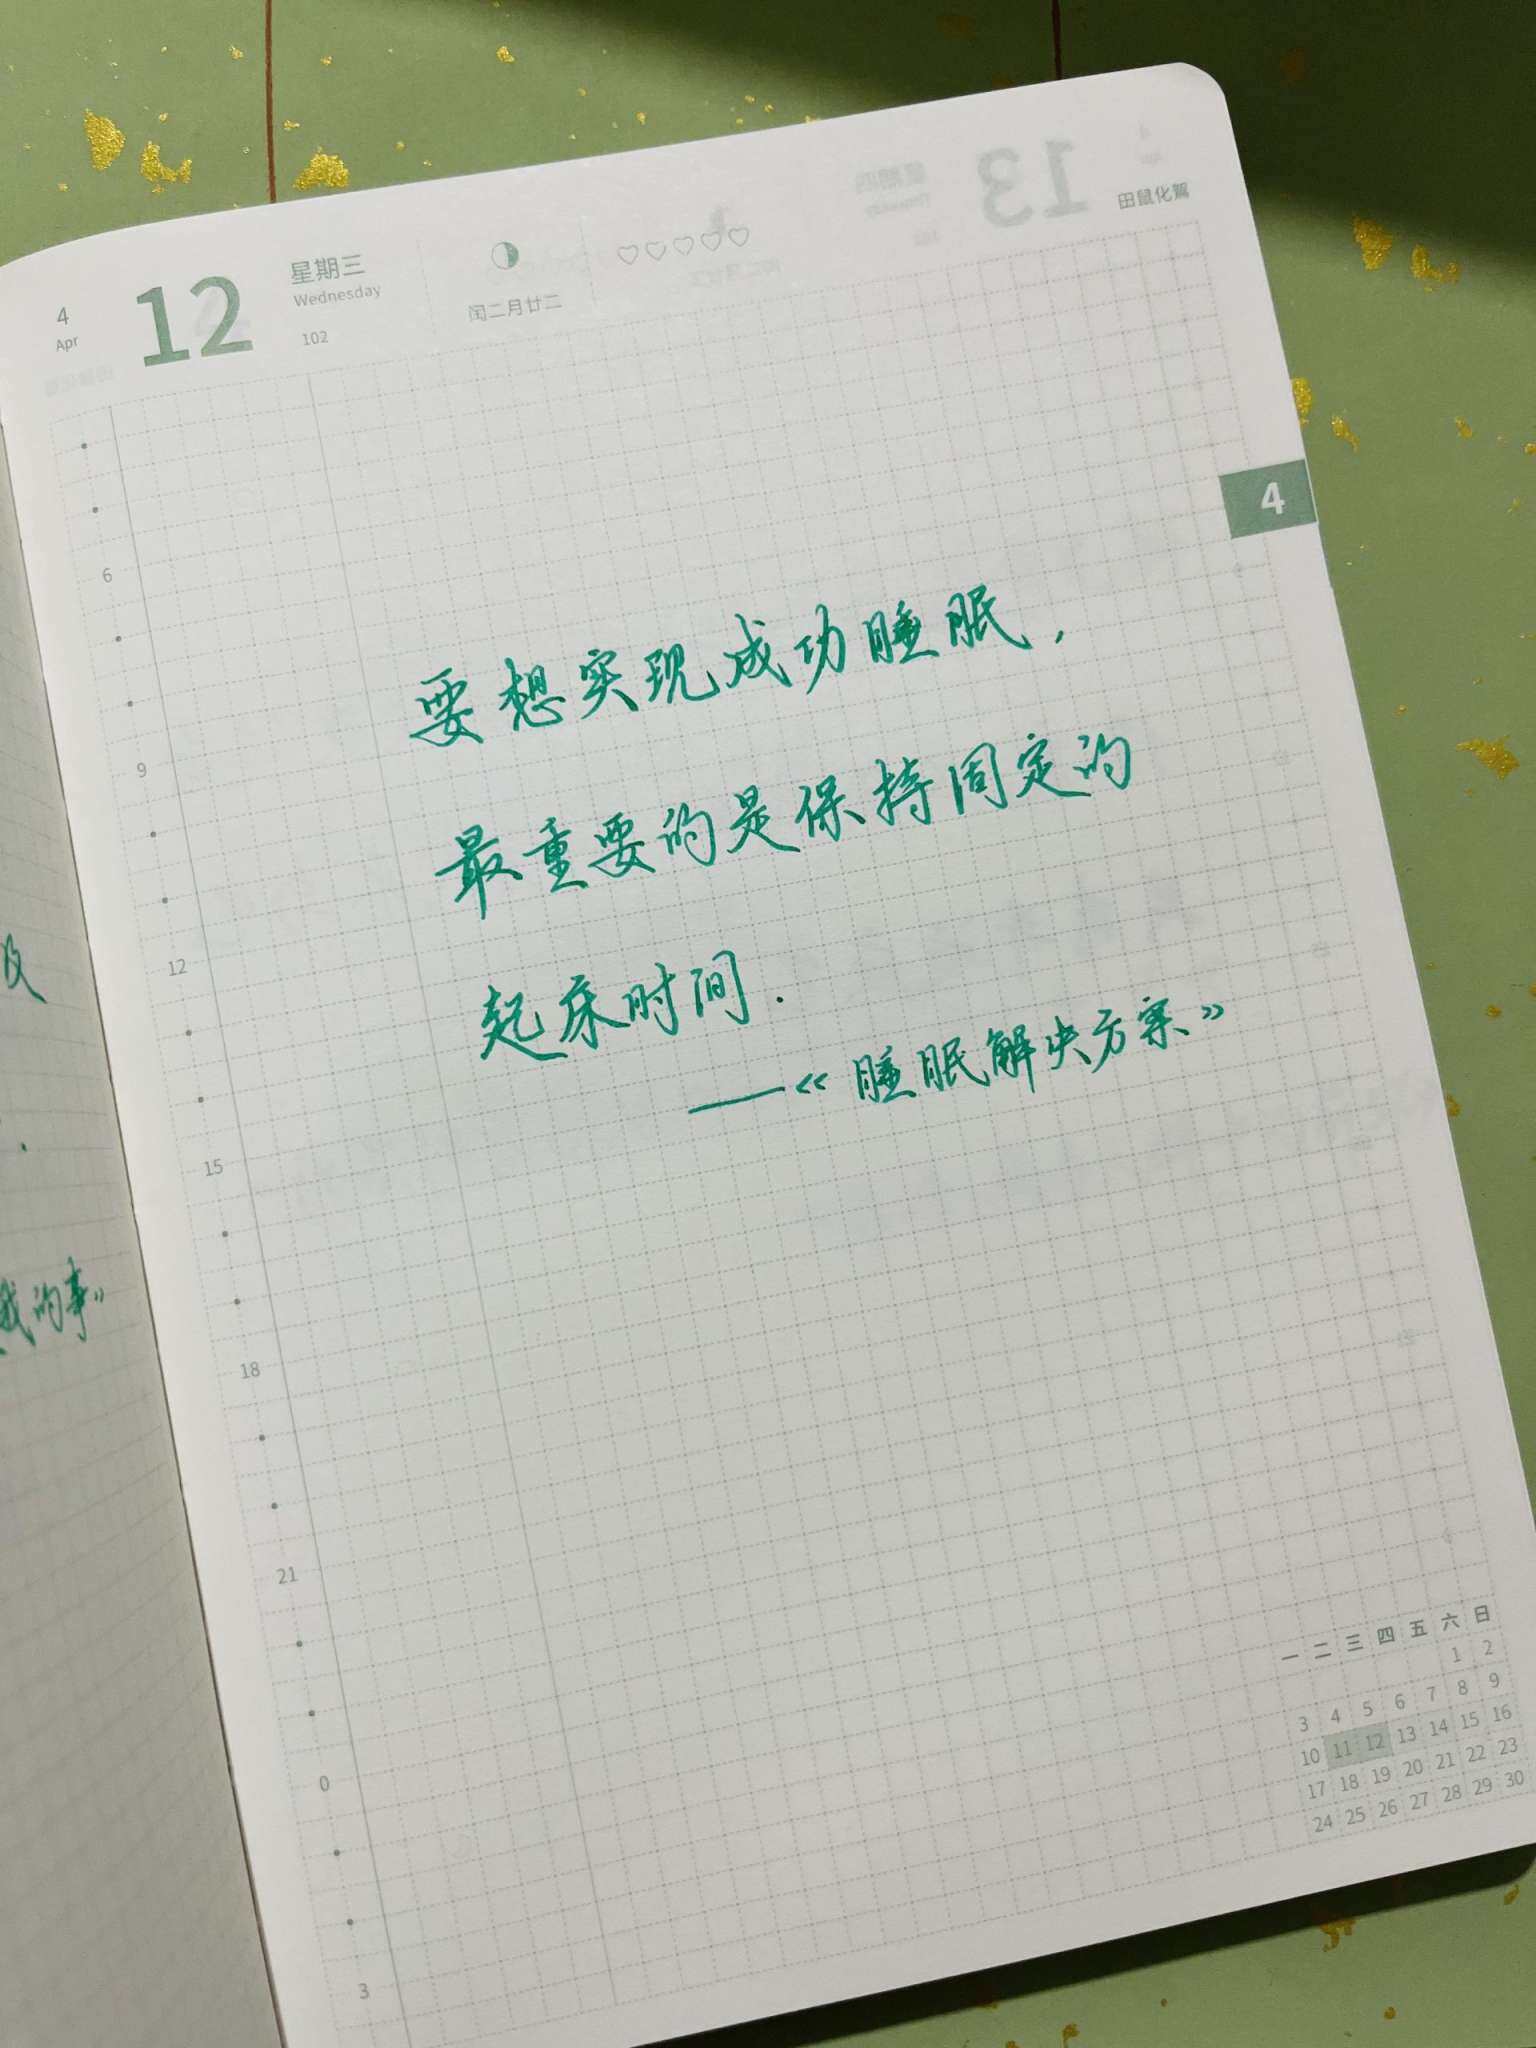 4
Apr
12
星期三
Wednesday
102
闰二月廿二
♡♡♡♡♡
田鼠化鴽
4
6
9
12
15
18
21
0
3
要想实现成功睡眠，
最重要的是保持固定的
起床时间.
——《睡眠解决方案》
及
我的事》
一 二 三 四 五 六 日
1 2
3 4 5 6 7 8 9
10 11 12 13 14 15 16
17 18 19 20 21 22 23
24 25 26 27 28 29 30